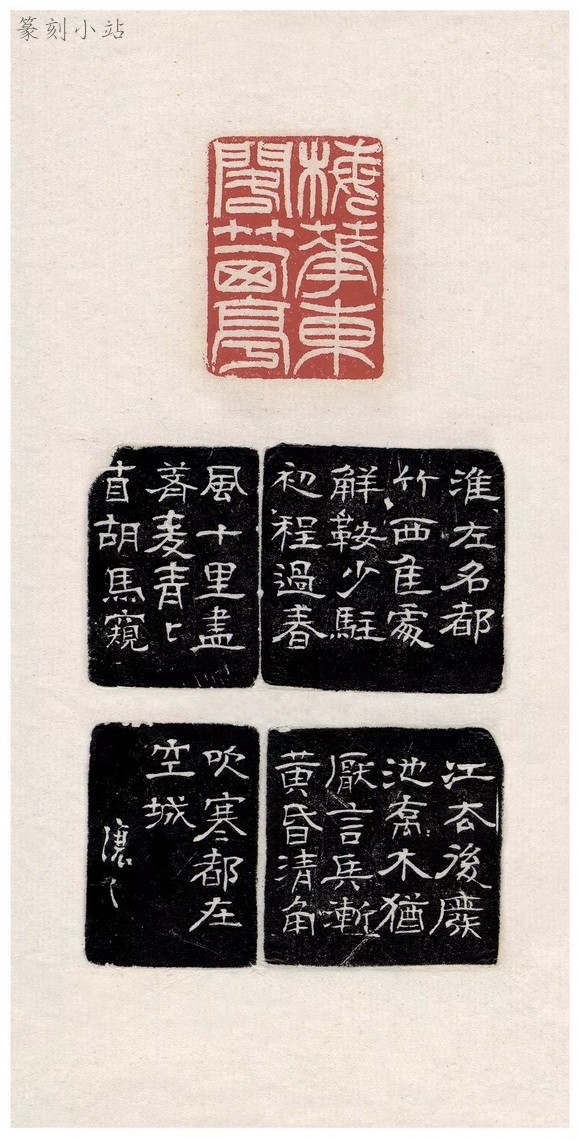 篆刻小站
梅華東
閣
淮左名都
竹西佳處
觧鞍少駐
初程過春
風十里盡
薺麥青〻
自胡馬窺
江去後廢
池喬木猶
厭言兵漸
黃昏清角
吹寒都在
空城
讓之